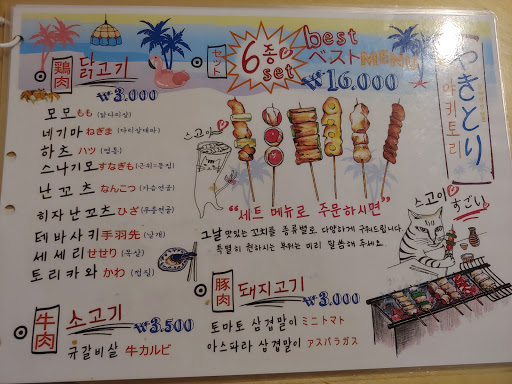 鶏肉 닭고기
₩3.000
모모 もも (닭다리살)
네기마 ねぎま (다리살대파)
하츠 ハツ (염통)
스나기모 すなぎも (근위=똥집)
난꼬츠 なんこつ (가슴연골)
히자난꼬츠 ひざ (무릎연골)
테바사키 手羽先 (날개)
세세리 せせり (목살)
토리카와 かわ (껍질)
牛肉 소고기
₩3.500
규갈비살 牛カルビ
セット 6종 set
best
ベスト MENU
₩16.000
스고이
"세트 메뉴로 주문하시면"
그날 맛있는 꼬치를 종류별로 다양하게 구워드립니다.
특별히 원하시는 부위는 미리 말씀해 주세요.
豚肉 돼지고기
₩3.000
토마토 삼겹말이 ミニトマト
아스파라 삼겹말이 アスパラガス
やきとり
야키토리
스고이
すごい